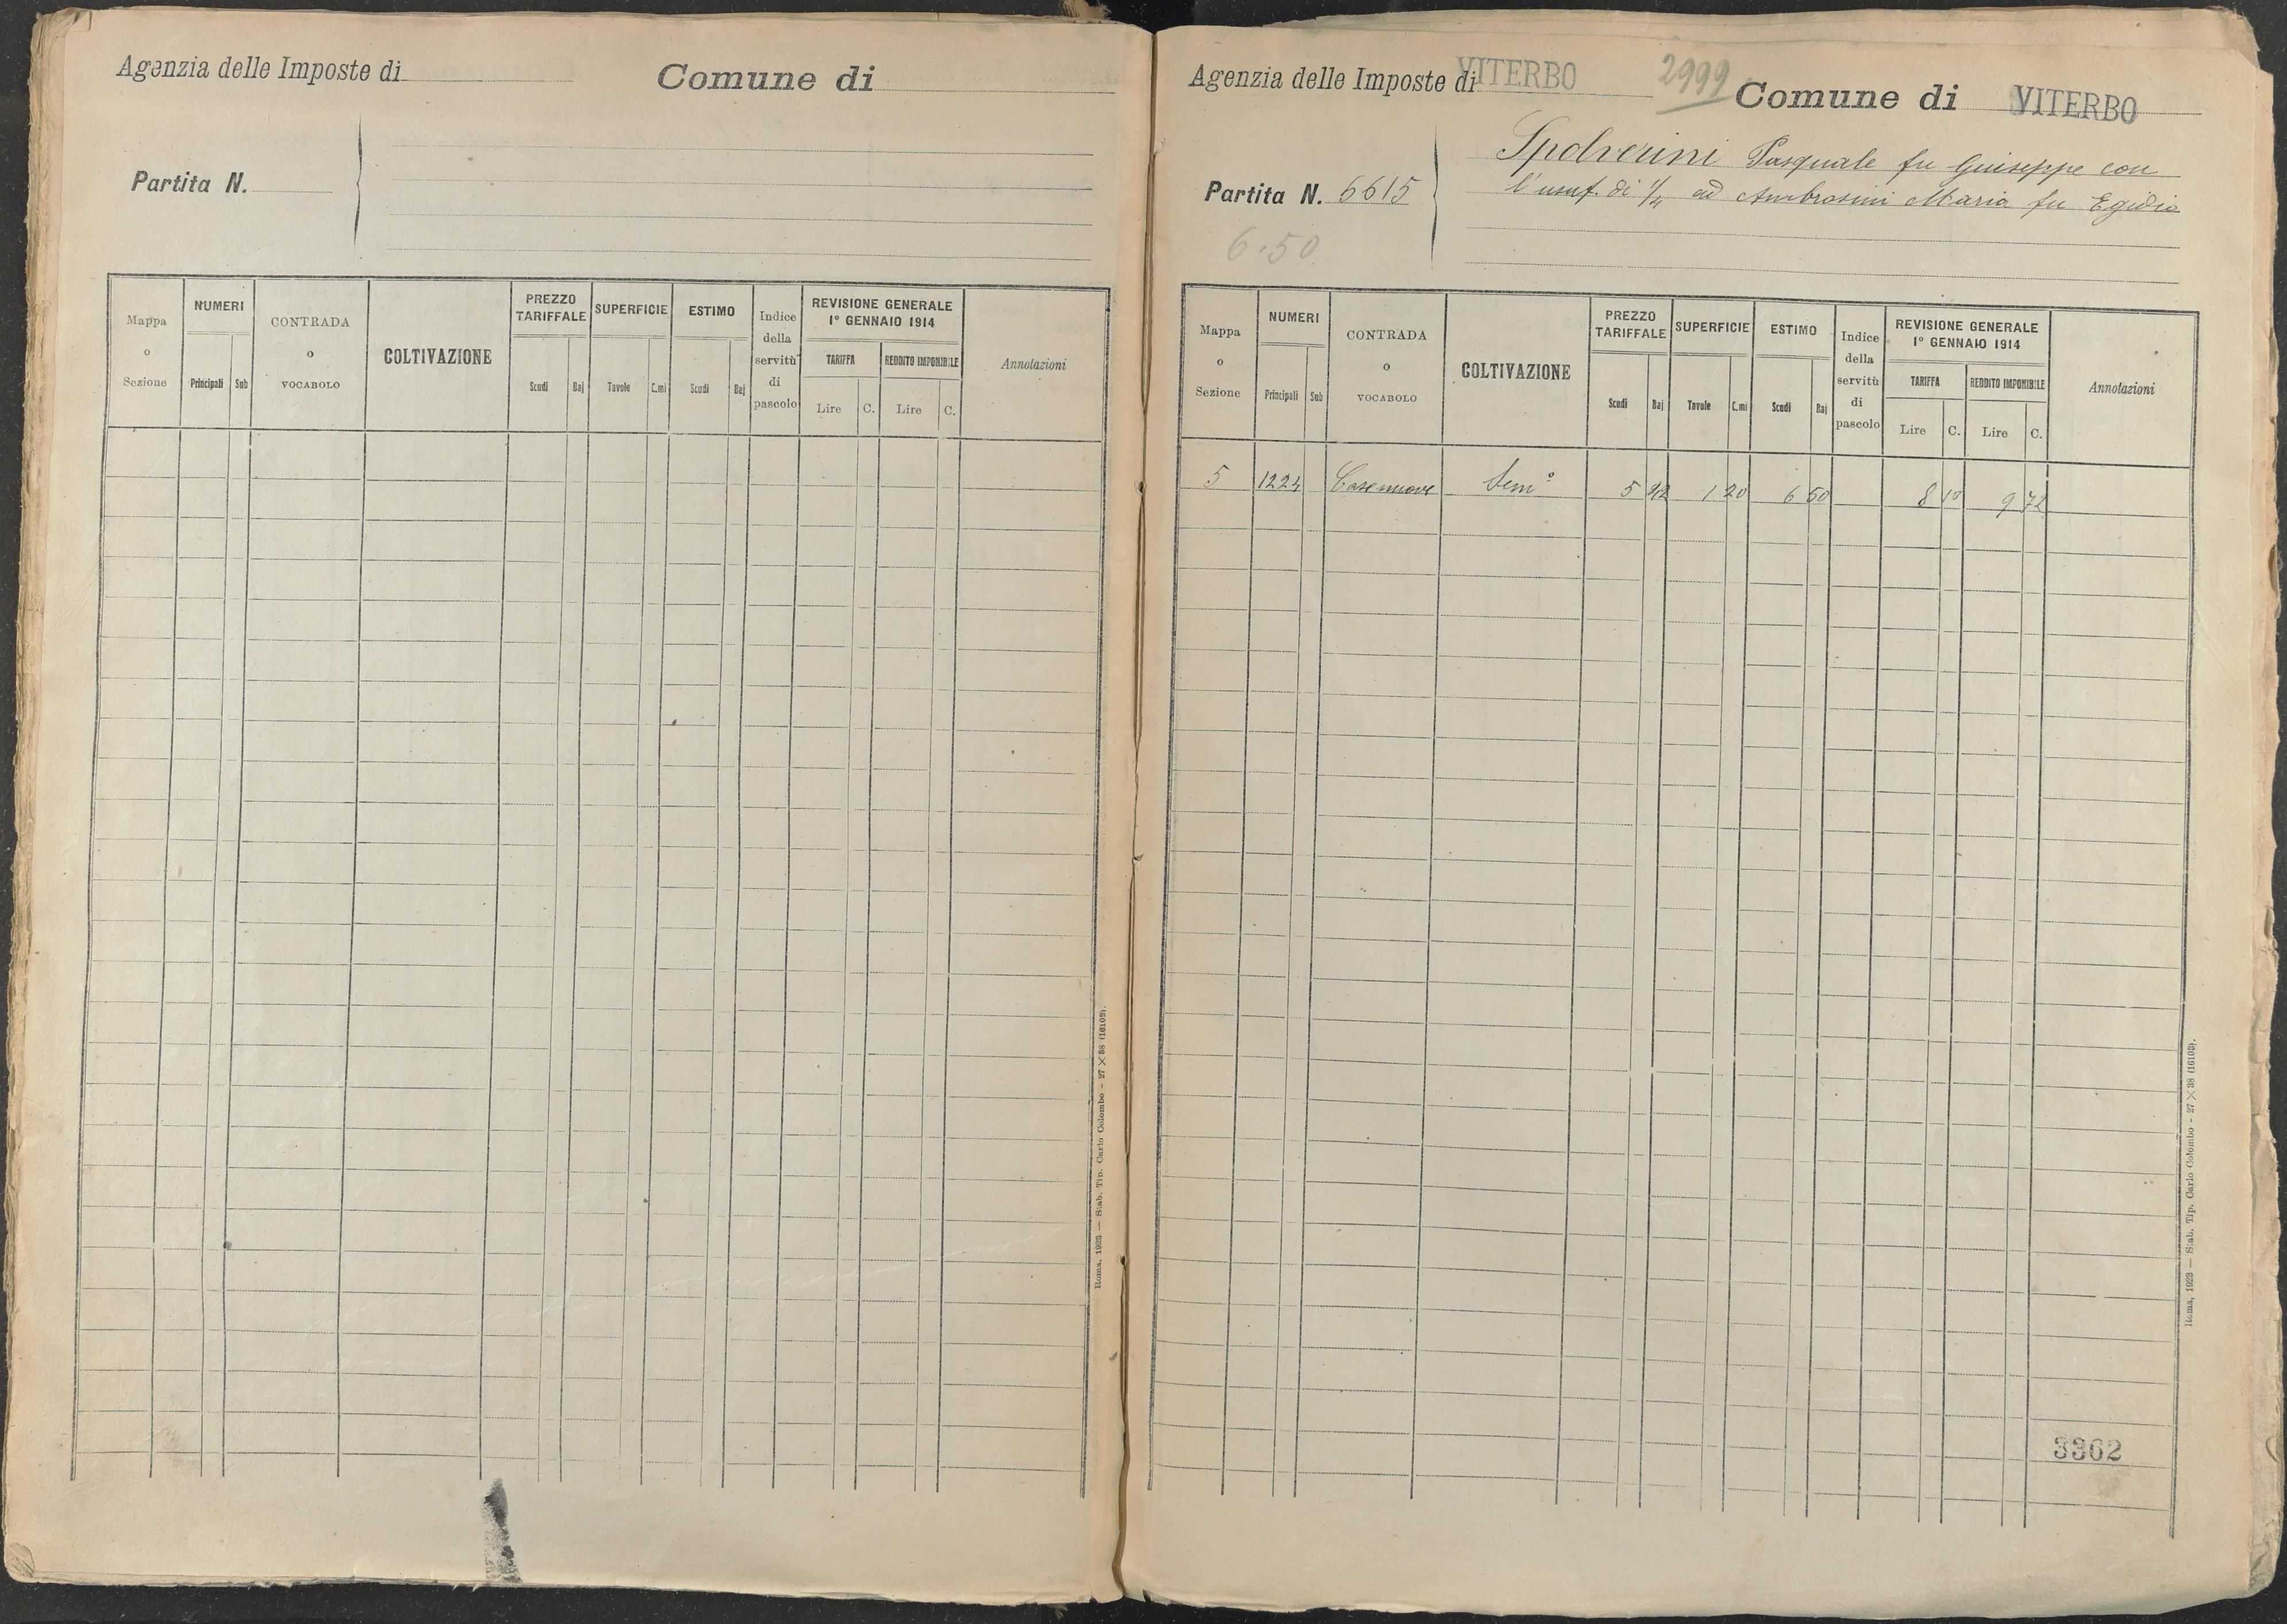 Agenzia delle Imposte di
Comune di
Partita N.
Mappa o Sezione
NUMERI
Principali
Sub
CONTRADA o VOCABOLO
COLTIVAZIONE
PREZZO TARIFFALE
Scudi
Baj
SUPERFICIE
Tavole
C.mi
ESTIMO
Scudi
Baj
Indice della servitù di pascolo
REVISIONE GENERALE
1º GENNAIO 1914
TARIFFA
REDDITO IMPONIBILE
Lire
C.
Lire
C.
Annotazioni
Roma, 1923 — Stab. Tip. Carlo Colombo - 27 × 38 (16103).
Agenzia delle Imposte di VITERBO
2999
Comune di VITERBO
Partita N. 6615
Spolverini Pasquale fu Giuseppe con
l'usuf. di 1/4 ad Ambrosini Maria fu Egidio
6.50
Mappa o Sezione
NUMERI
Principali
Sub
CONTRADA o VOCABOLO
COLTIVAZIONE
PREZZO TARIFFALE
Scudi
Baj
SUPERFICIE
Tavole
C.mi
ESTIMO
Scudi
Baj
Indice della servitù di pascolo
REVISIONE GENERALE
1º GENNAIO 1914
TARIFFA
REDDITO IMPONIBILE
Lire
C.
Lire
C.
Annotazioni
5 1224 Casenuove Semº 5 42 1 20 6 50 8 10 9 72
3362
Roma, 1923 — Stab. Tip. Carlo Colombo - 27 × 38 (16103).